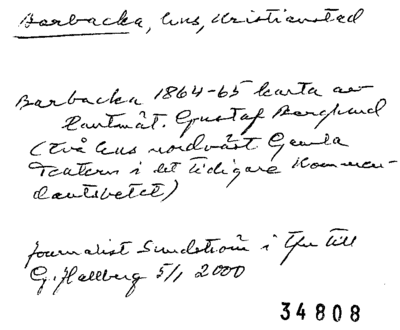 Barbacka, hus, Kristianstad
Barbacka 1864-65 karta av
Lantmät. Gustaf Berglund
(två hus nordväst Gamla
Teatern i det tidigare Kommen-
dantsbetet)
Journalist Sundström i tfn till
G. Hallberg 5/1 2000
34808